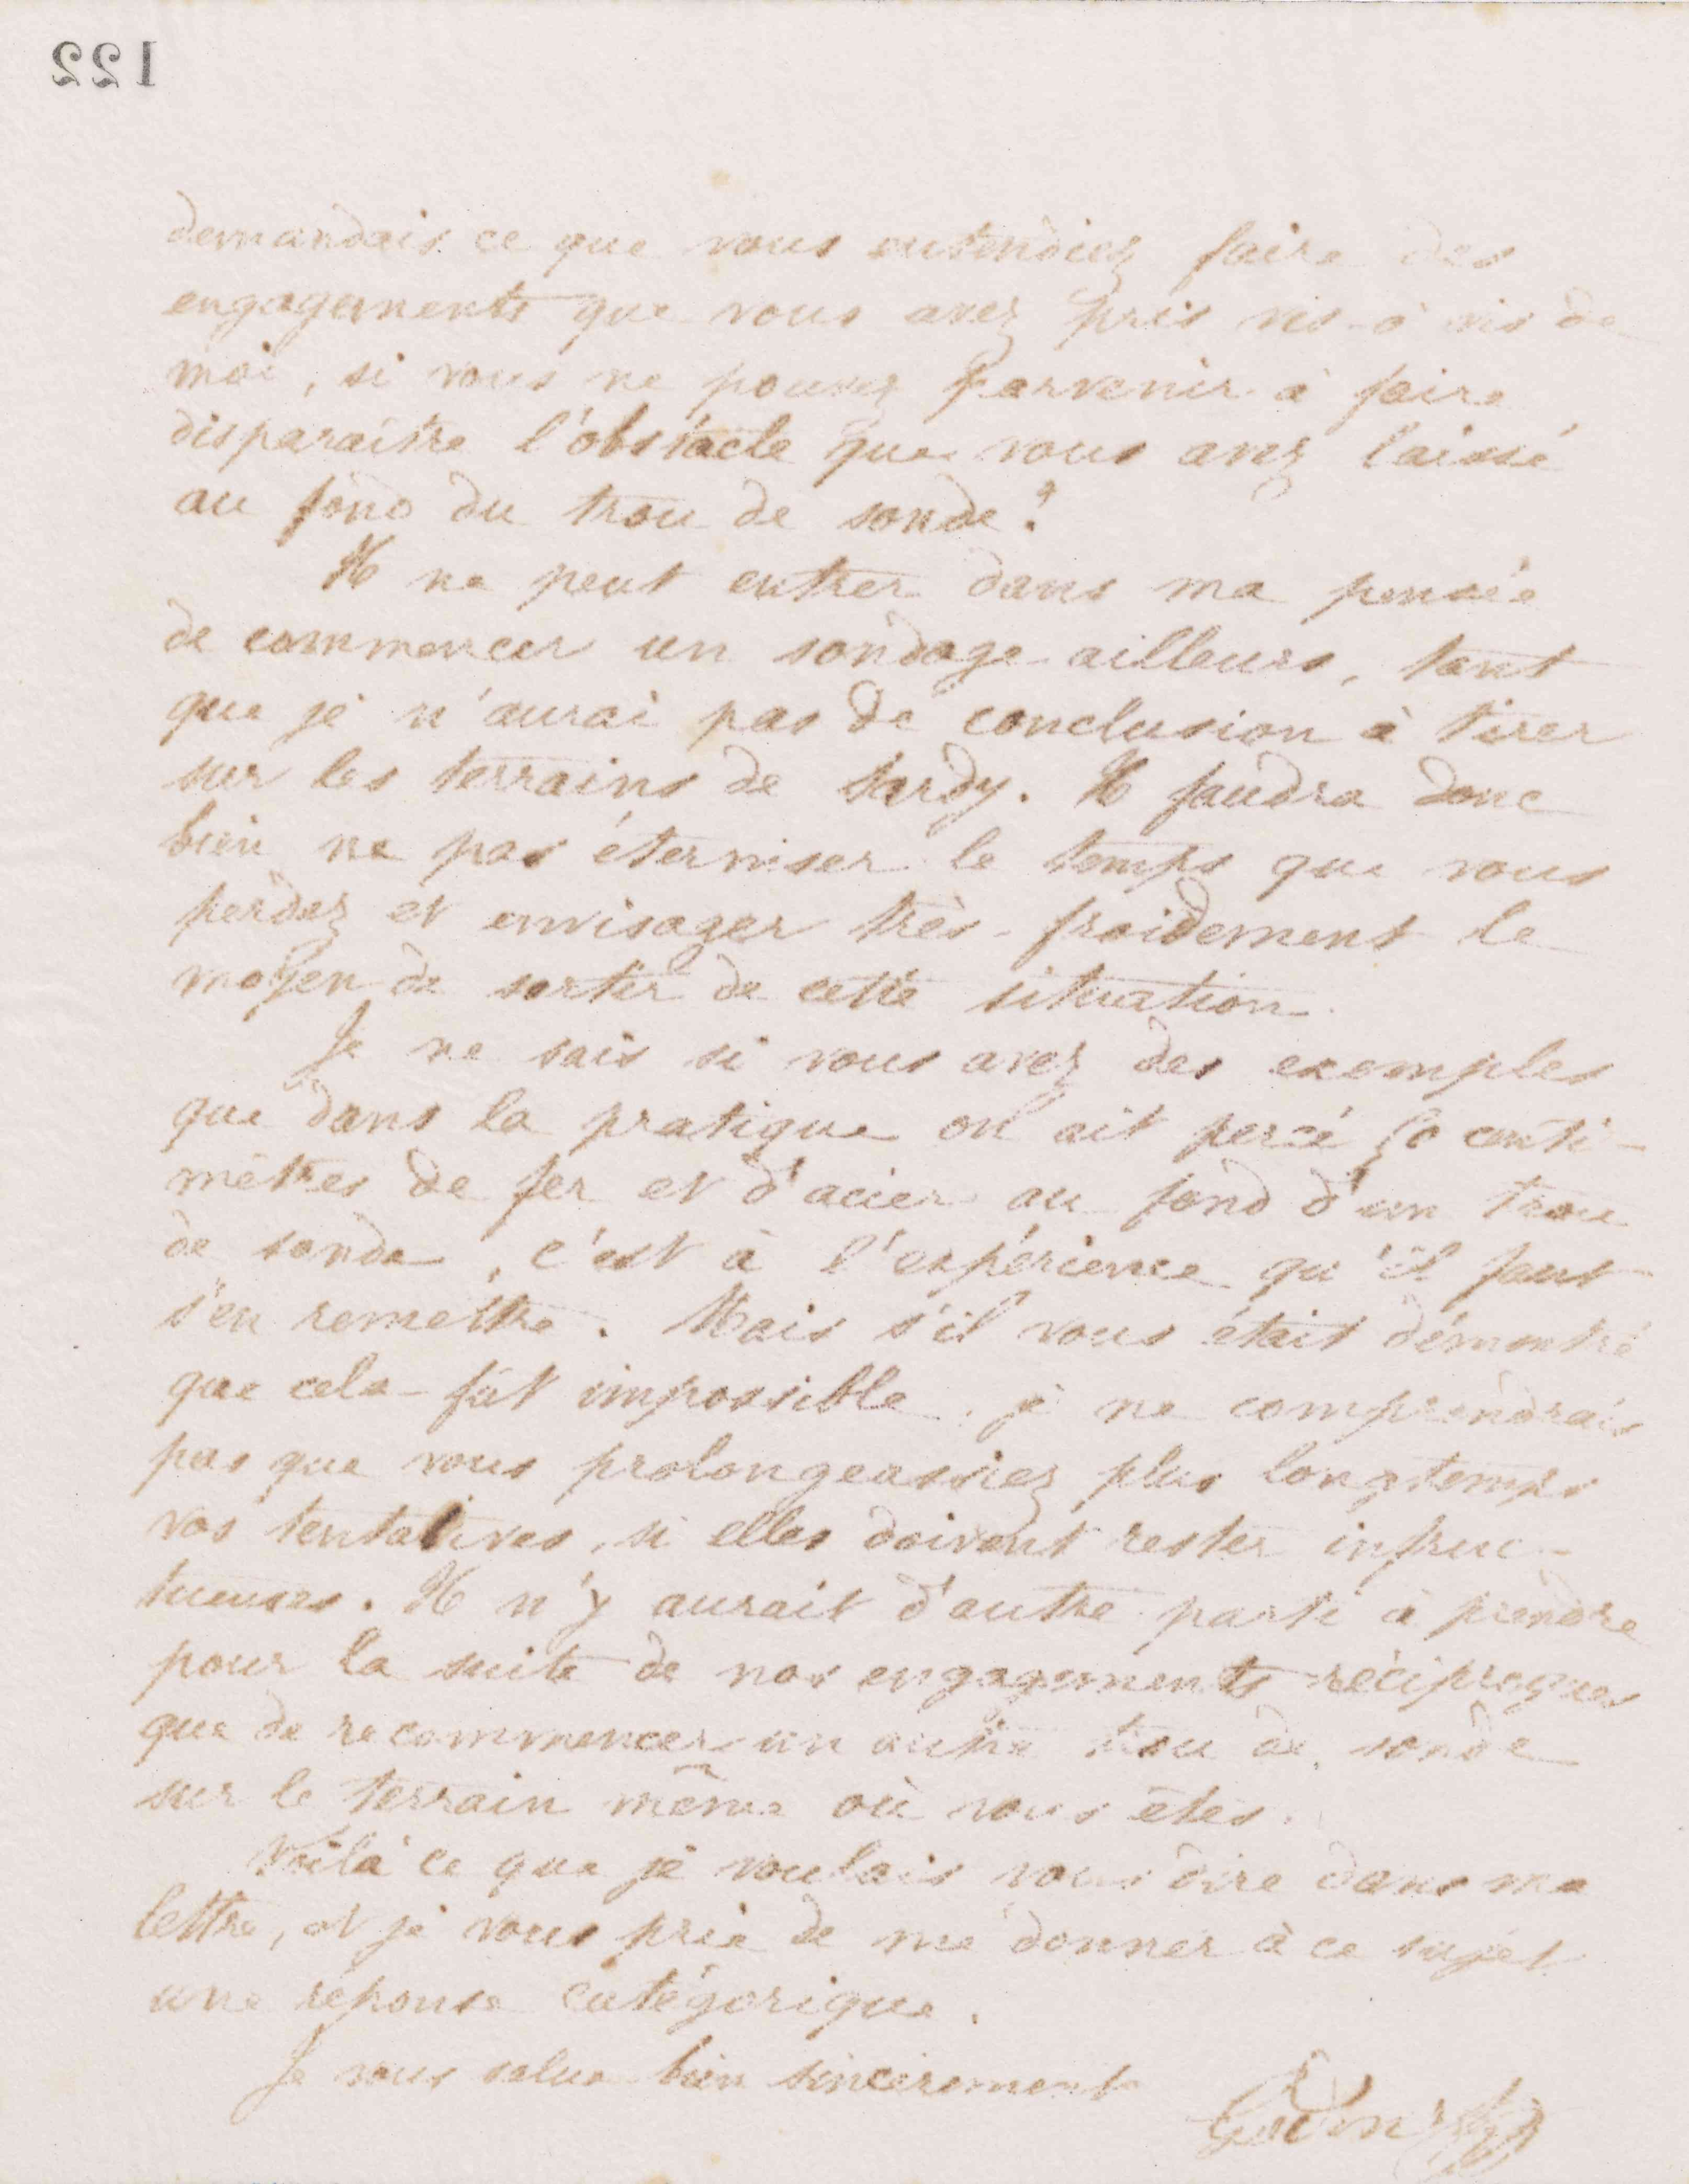 122
demandais ce que vous entendiez faire des
engagements que vous avez pris vis-à vis de
moi, si vous ne pouvez parvenir à faire
disparaître l'obstacle que vous avez laissé
au fond du trou de sonde ?
Il ne peut entrer dans ma pensée
de commencer un sondage ailleurs, tant
que je n'aurai pas de conclusion à tirer
sur les terrains de Sardy. Il faudra donc
bien ne pas éterniser le temps que vous
perdez et envisager très-froidement le
moyen de sortir de cette situation.
Je ne sais si vous avez des exemples
que dans la pratique on ait percé 50 centi-
mètres de fer et d'acier au fond d'un trou
de sonde, c'est à l'expérience qu'il faut
s'en remettre. Mais s'il vous était démontré
que cela fût impossible, je ne comprendrais
pas que vous prolongeassiez plus longtemps
vos tentatives, si elles doivent rester infruc-
tueuses. Il n'y aurait d'autre parti à prendre
pour la suite de nos engagements réciproques
que de recommencer un autre trou de sonde
sur le terrain même où vous êtes.
Voilà ce que je voulais vous dire dans ma
lettre, et je vous prie de me donner à ce sujet
une réponse catégorique.
Je vous salue bien sincèrement
Godin